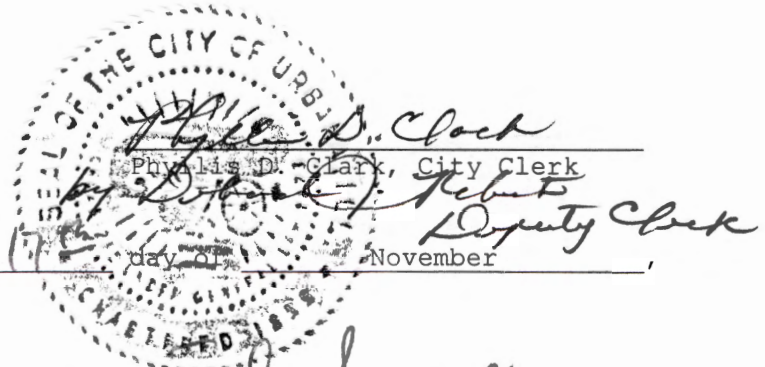 SEAL OF THE CITY OF URBANA
Phyllis D. Clark
Phyllis D. Clark, City Clerk
by Deborah J. Roberts
Deputy Clerk
17th day of November,
CHARTERED 1855